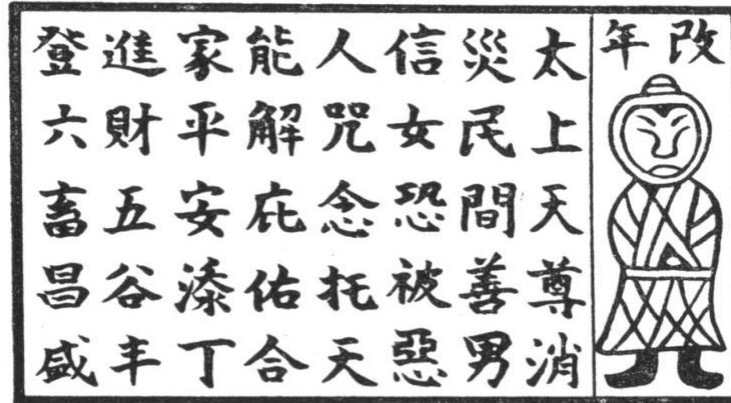 改年
太上天尊消
災民間善男
信女恐被惡
人咒念托天
能解庇佑合
家平安添丁
進財五谷丰
登六畜昌盛